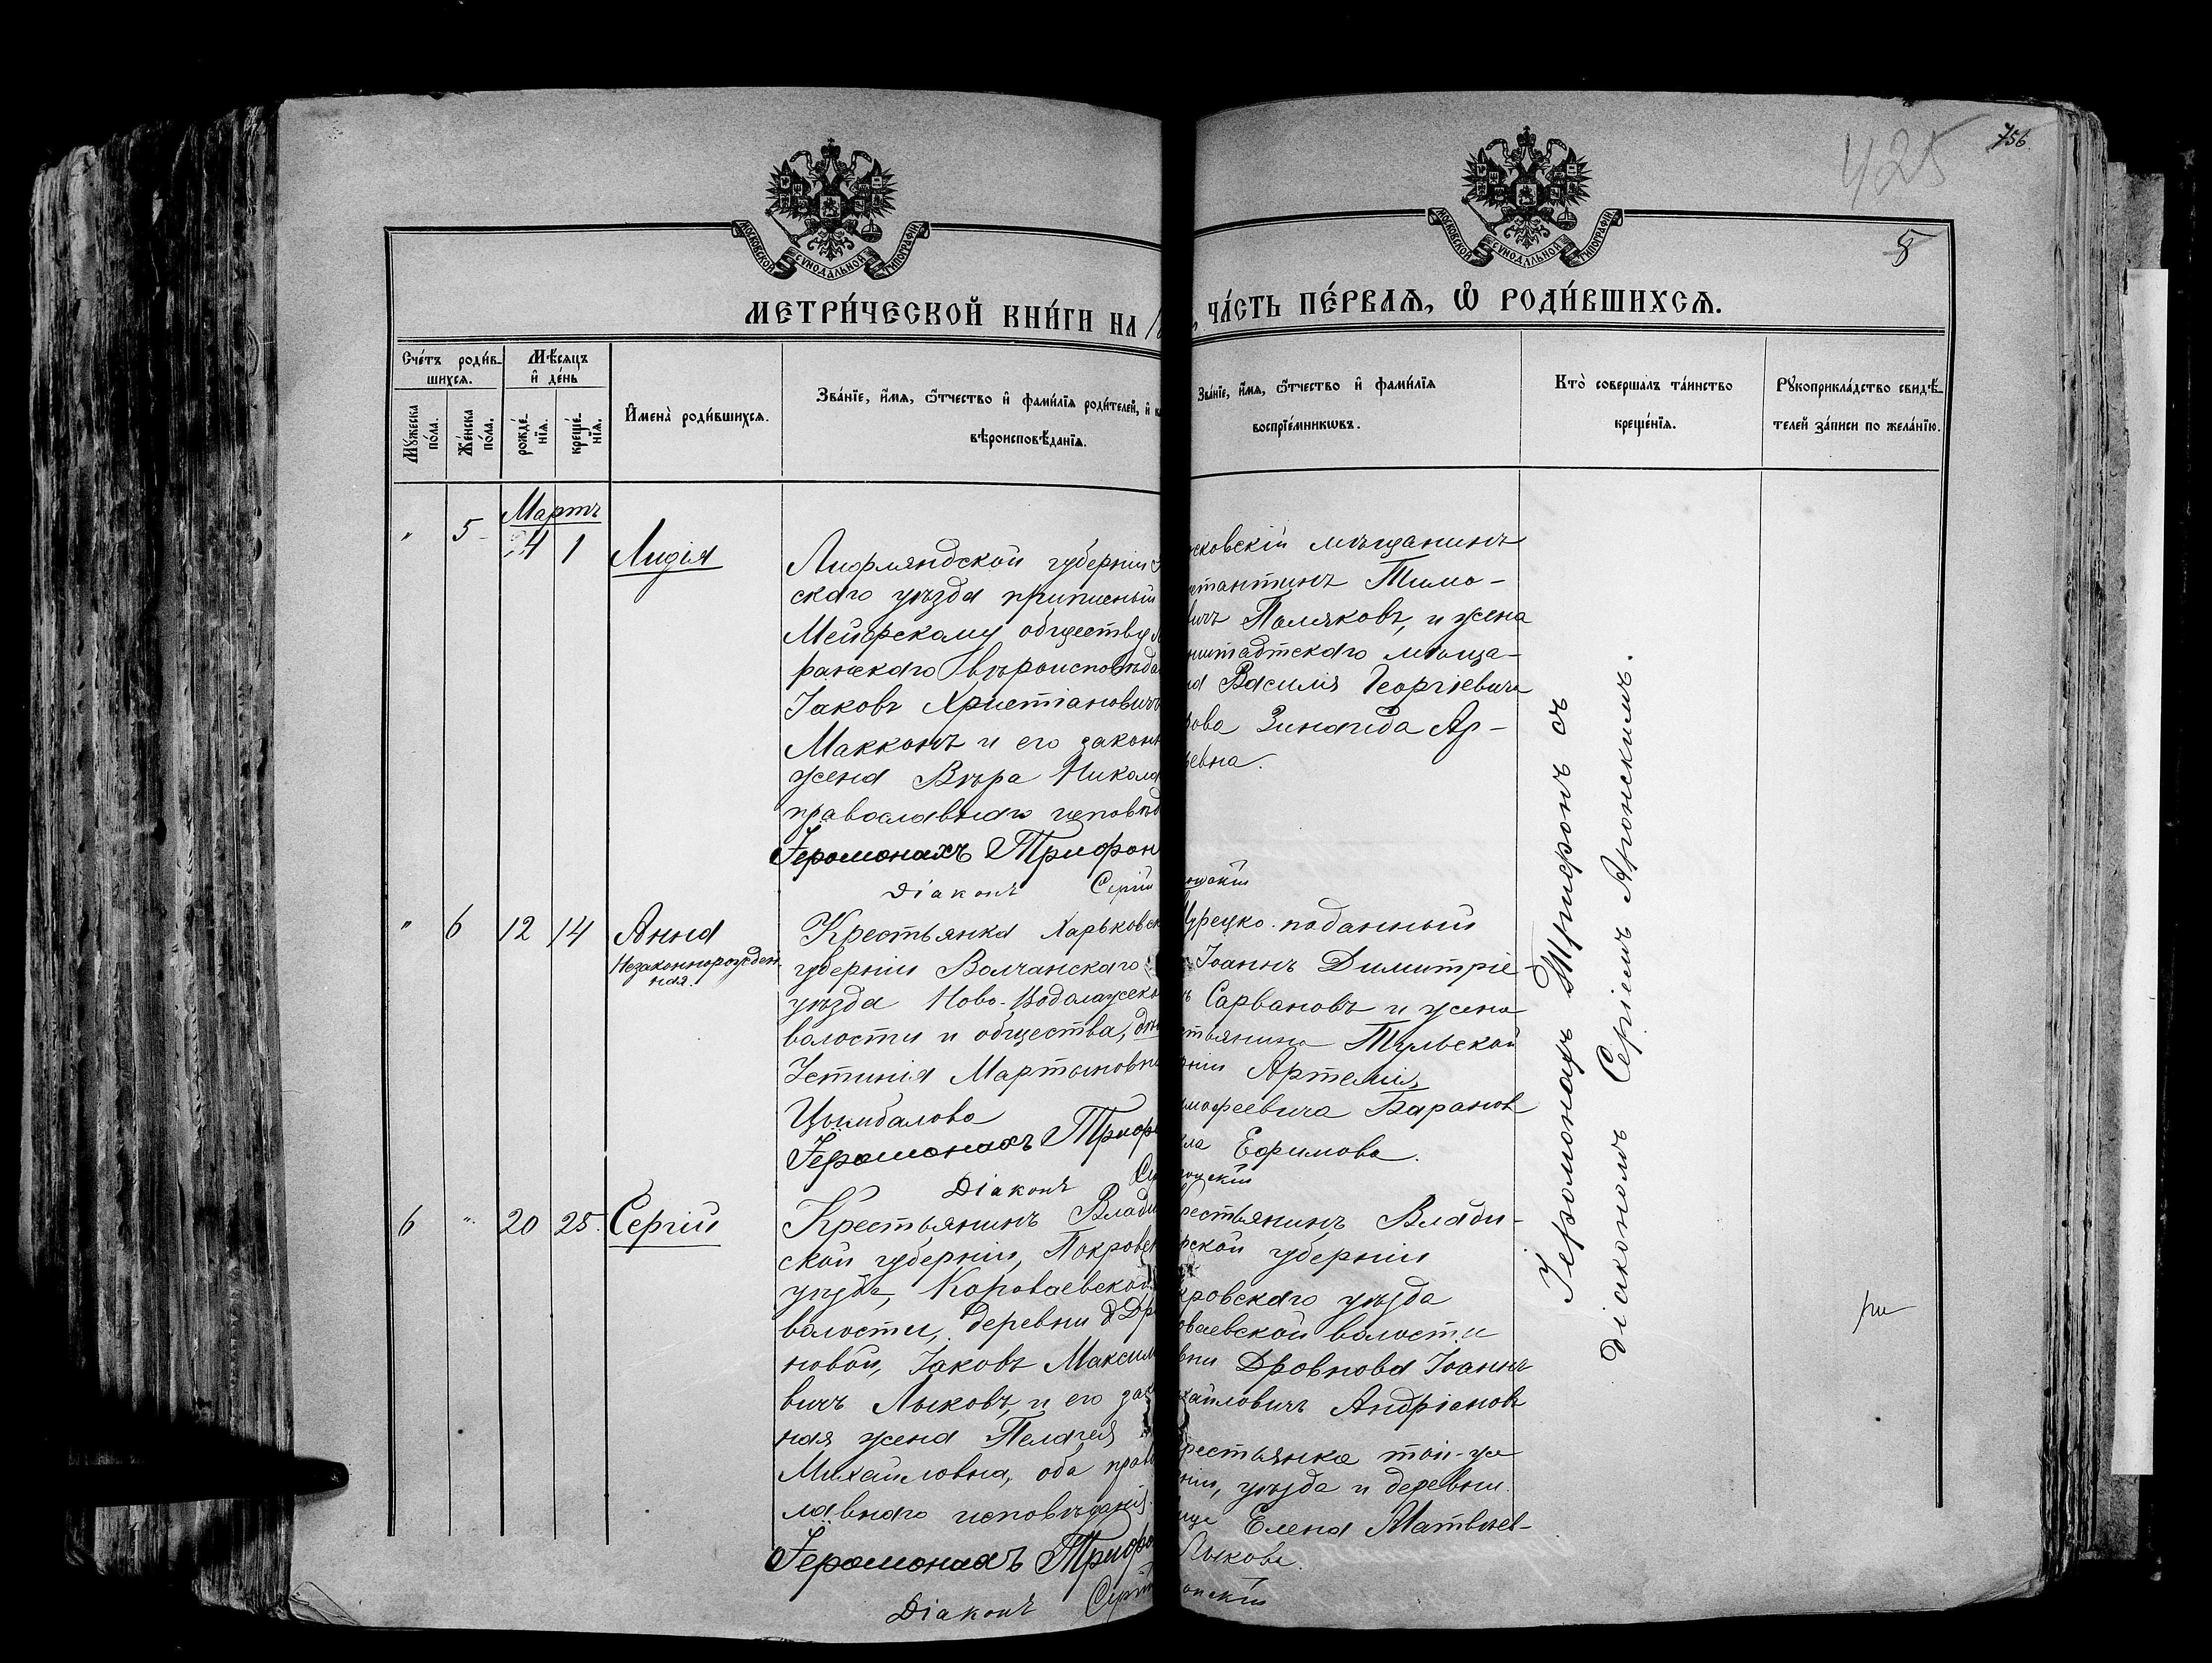 425
756
5
МОСКОВСКОЙ СѴНОДАЛЬНОЙ ТИПОГРАФІИ
МОСКОВСКОЙ СѴНОДАЛЬНОЙ ТИПОГРАФІИ
МЕТРИ́ЧЕСКОЙ КНИ́ГИ НА
ЧА́СТЬ ПЕ́РВАѦ, Ѡ҆ РОДИ́ВШИХСѦ.
Сче́тъ роди́в-
шихсѧ.
Мꙋ́жеска
по́ла.
Же́нска
по́ла.
Мѣ́сѧцъ
и҆ де́нь
рожде́-
нїѧ.
креще́-
нїѧ.
И҆мена̀ роди́вшихсѧ.
Зва́нїе, и҆́мѧ, ѻ҆́тчество и҆ фами́лїѧ роди́телей, и҆
вѣроисповѣ́данїѧ.
Зва́нїе, и҆́мѧ, ѻ҆́тчество и҆ фами́лїѧ
воспрїе́мникѡвъ.
Кто̀ соверша́лъ та́инство
креще́нїѧ.
Рꙋкоприкла́дство свидѣ́-
телей за́писи по жела́нїю.
Мартъ
" 5 4 1 Лидія
Лифляндской губерніи
скаго уѣзда приписный
Мейерскому обществу
ранскаго вѣроисповѣда
Іаковъ Христіановичъ
Макконъ и его законн
жена Вѣра Никола
православнаго исповѣд
Іеромонахъ Трифон
Діаконъ Сергій
сковскій мѣщанинъ
стантинъ Тимо-
вичъ Поляковъ, и жена
нштадтскаго мѣща-
на Василія Георгіевича
рова Зинаида Ар-
ьевна.
онскій
" 6 12 14 Анна
Незаконнорожден-
ная.
Крестьянка Харьковск
губерніи Волчанскаго
уѣзда Ново-Водолажско
волости и общества, дѣв
Устинія Мартиновна
Цымбалова
Іеромонахъ Трифо
Діаконъ Се
Турецко-поданный
Іоаннъ Димитріе-
ъ Сарвановъ и жена
стьянина Тульской
рніи Артемія
имофеевича Баранов
кла Ефимова.
онскій
6 " 20 25 Сергій
Крестьянинъ Влади
ской губерніи, Покровск
уѣзда, Короваевской
волости, деревни Дро
новой, Іаковъ Максим
вичъ Лыковъ, и его зак
ная жена Пелагея
Михайловна, оба право
лавнаго исповѣданія.
Іеромонахъ Трифо
Діаконъ Сергій
рестьянинъ Влади-
рской губерніи
кровскаго уѣзда
оваевской волости
вни Дровнова Іоаннъ
хайловичъ Андріановъ
рестьянка той-же
ніи, уѣзда и деревни
ица Елена Матвѣев-
Лыкова.
онскій
Іеромонахъ Трифонъ съ
діакономъ Сергіемъ Афонскимъ.